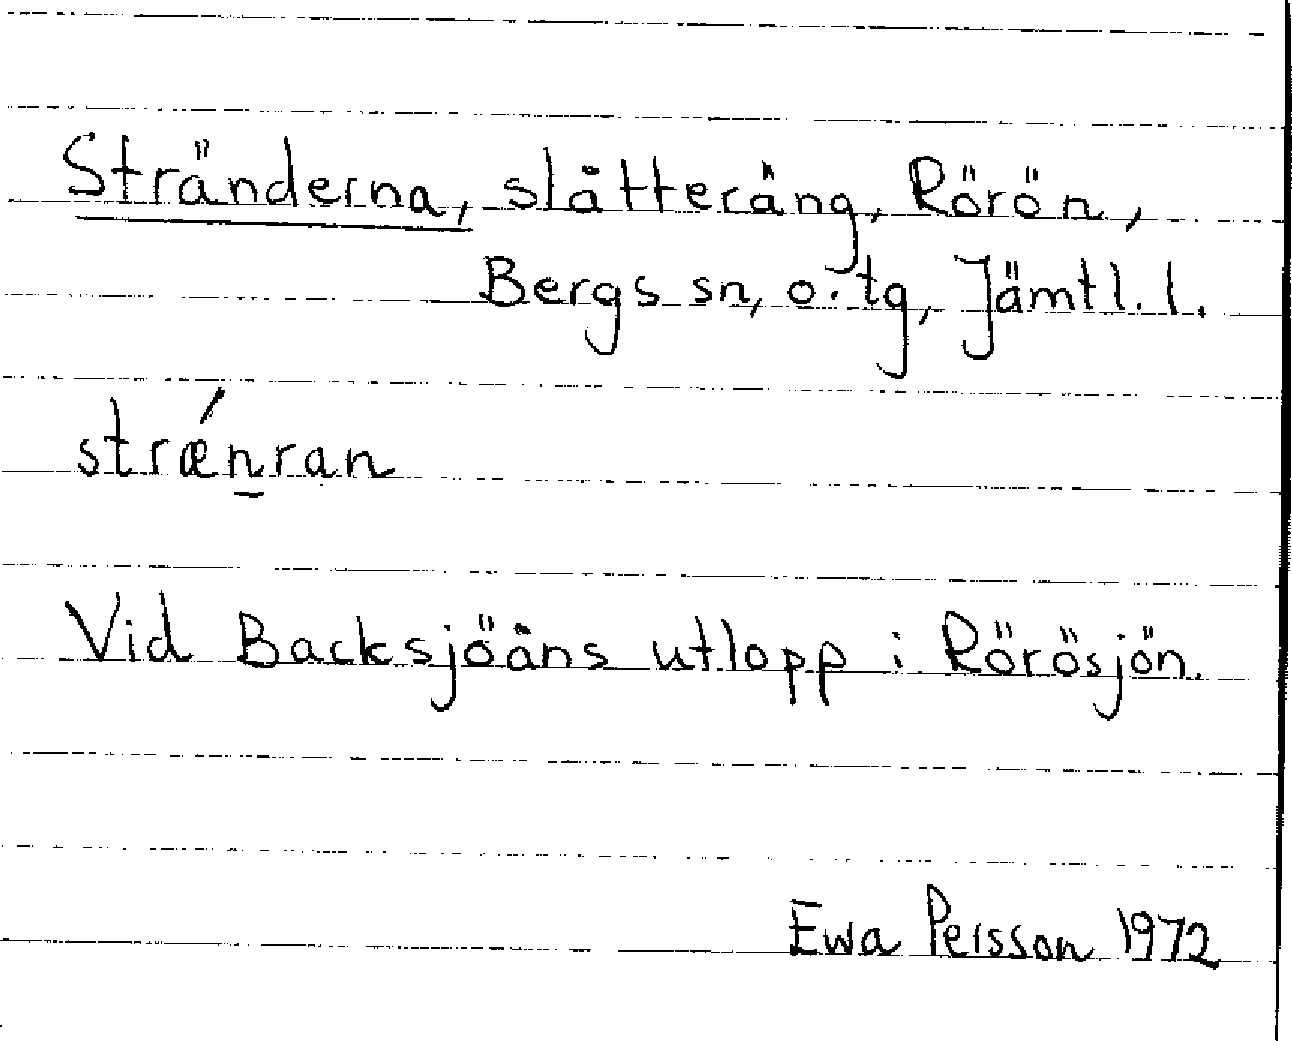 Stränderna, slåtteräng, Rörön,
Bergs sn, o. tg, Jämtl. l.
strǽn̠ran
Vid Backsjöåns utlopp i Rörösjön.
Ewa Persson 1972